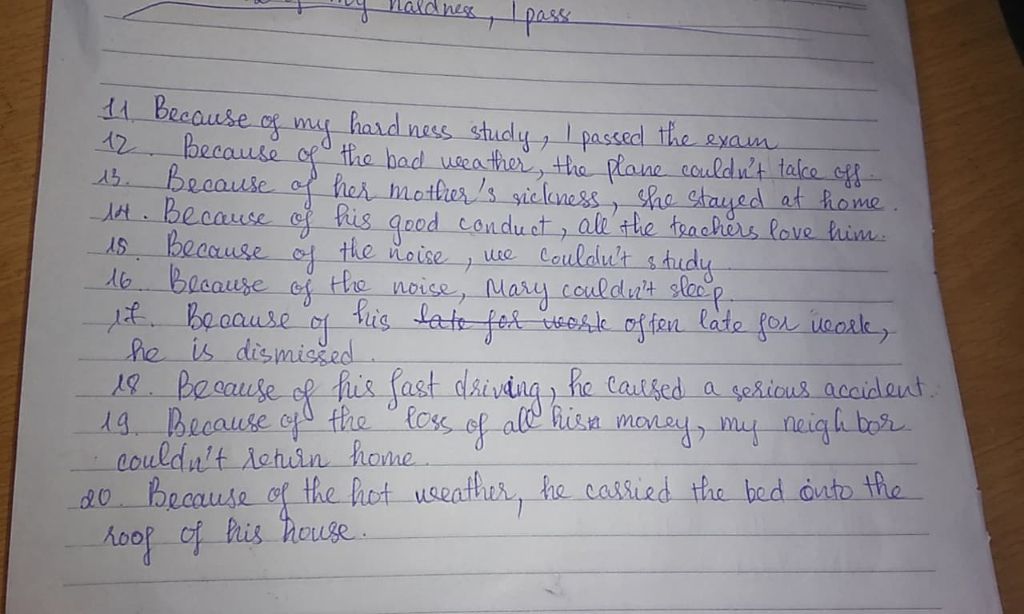 of my hardness, I pass
11. Because of my hardness study, I passed the exam
12. Because of the bad weather, the plane couldn't take off.
13. Because of her mother's sickness, she stayed at home.
14. Because of his good conduct, all the teachers love him.
15. Because of the noise, we couldn't study
16. Because of the noise, Mary couldn't sleep.
17. Because of his late for work often late for work,
he is dismissed.
18. Because of his fast driving, he caused a serious accident.
19. Because of the loss of all his money, my neighbor
couldn't return home.
20. Because of the hot weather, he carried the bed onto the
roof of his house.